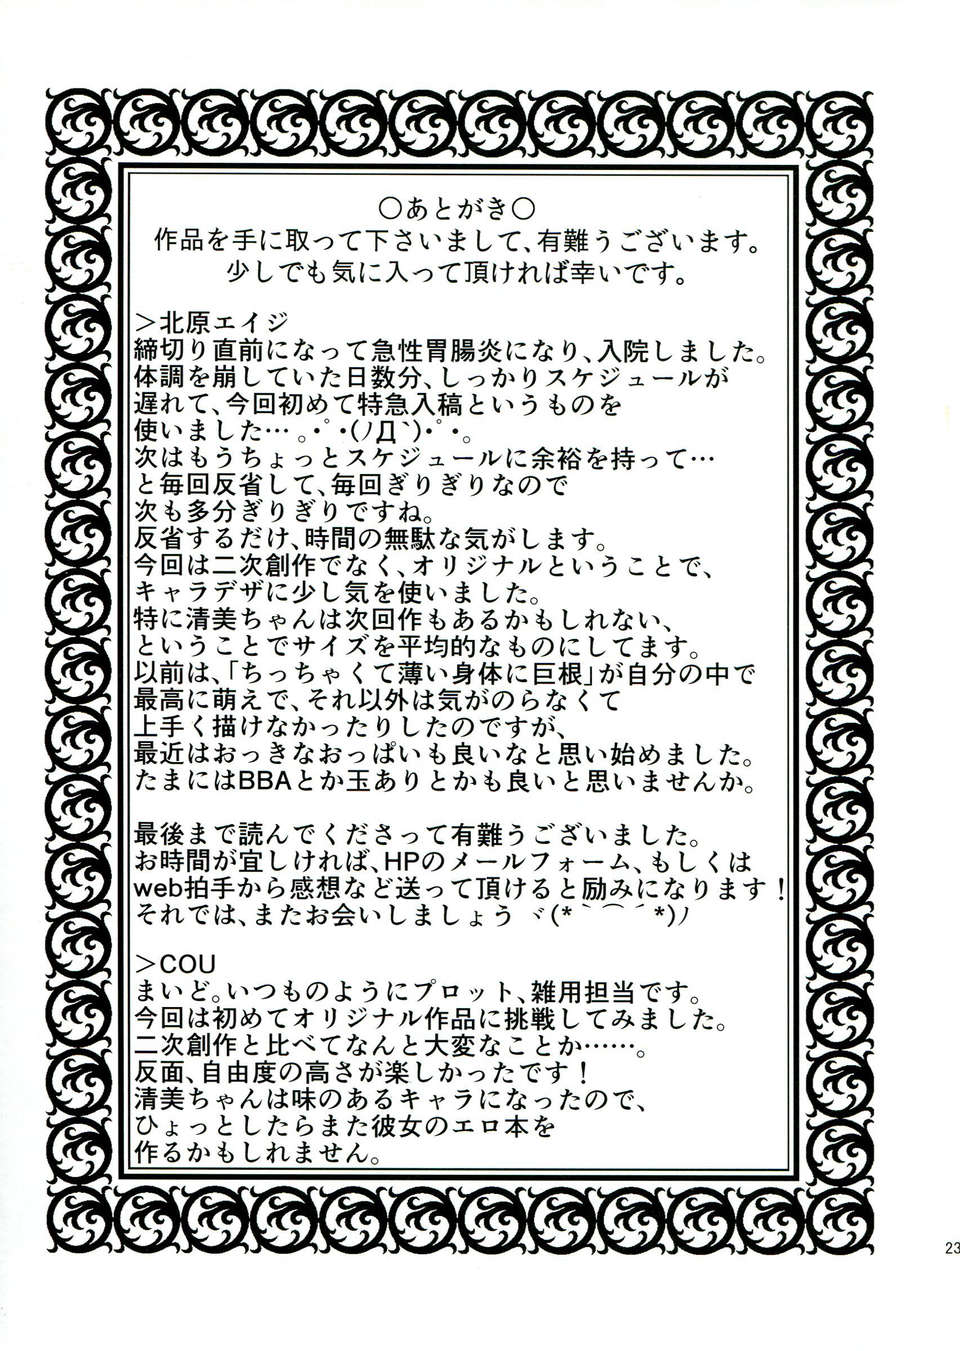 ○あとがき○
作品を手に取って下さいまして、有難うございます。
少しでも気に入って頂ければ幸いです。
＞北原エイジ
締切り直前になって急性胃腸炎になり、入院しました。
体調を崩していた日数分、しっかりスケジュールが
遅れて、今回初めて特急入稿というものを
使いました…。・ﾟ・(ﾉД`)・ﾟ・。
次はもうちょっとスケジュールに余裕を持って…
と毎回反省して、毎回ぎりぎりなので
次も多分ぎりぎりですね。
反省するだけ、時間の無駄な気がします。
今回は二次創作でなく、オリジナルということで、
キャラデザに少し気を使いました。
特に清美ちゃんは次回作もあるかもしれない、
ということでサイズを平均的なものにしてます。
以前は、「ちっちゃくて薄い身体に巨根」が自分の中で
最高に萌えで、それ以外は気がのらなくて
上手く描けなかったりしたのですが、
最近はおっきなおっぱいも良いなと思い始めました。
たまにはBBAとか玉ありとかも良いと思いませんか。
最後まで読んでくださって有難うございました。
お時間が宜しければ、HPのメールフォーム、もしくは
web拍手から感想など送って頂けると励みになります！
それでは、またお会いしましょうヾ(*｀⌒´*)ﾉ
＞COU
まいど。いつものようにプロット、雑用担当です。
今回は初めてオリジナル作品に挑戦してみました。
二次創作と比べてなんと大変なことか……。
反面、自由度の高さが楽しかったです！
清美ちゃんは味のあるキャラになったので、
ひょっとしたらまた彼女のエロ本を
作るかもしれません。
23